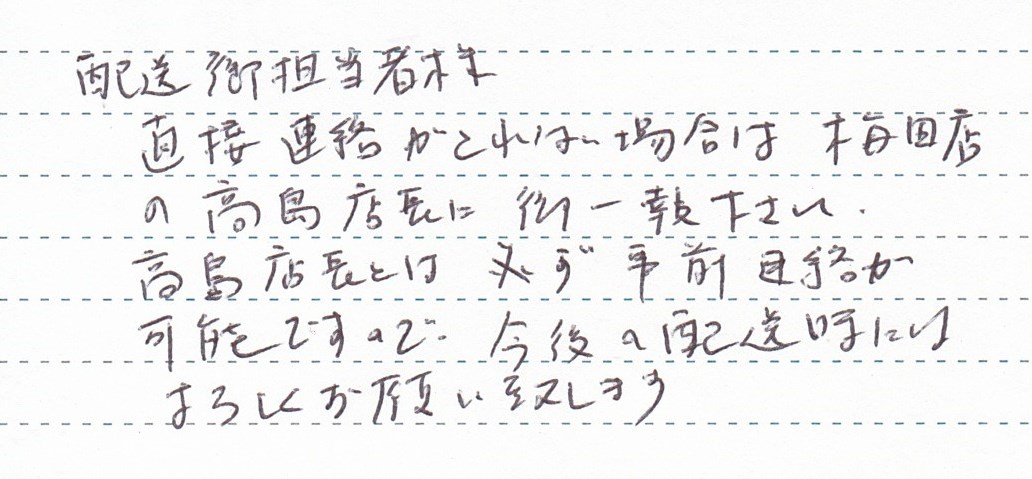 配送御担当者様
直接連絡がとれない場合は 梅田店
の高島店長に御一報下さい.
高島店長とは 必ず事前連絡が
可能ですので. 今後の配送時には
よろしくお願い致します